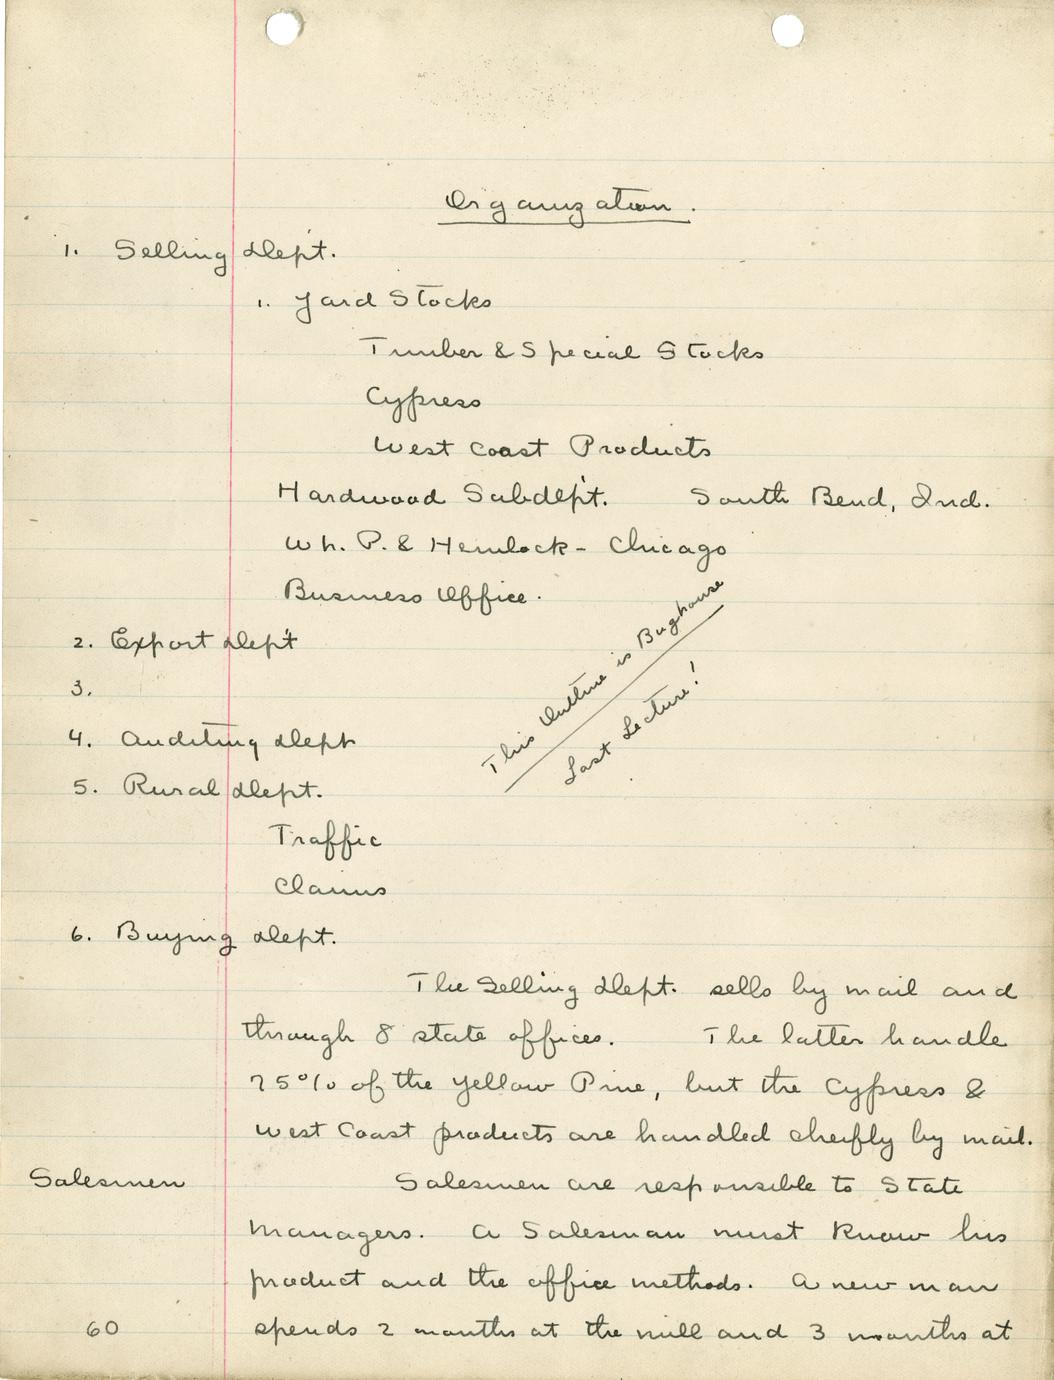 Organization.
1. Selling Dept.
1. Yard Stocks
Timber & Special Stocks
Cypress
West Coast Products
Hardwood Subdept. South Bend, Ind.
Wh. P. & Hemlock - Chicago
Business Office.
2. Export Dep't
3.
This Outline is Bughouse
Last Lecture!
4. Auditing Dept
5. Rural Dept.
Traffic
Claims
6. Buying Dept.
The Selling Dept. sells by mail and
through 8 state offices. The latter handle
75% of the Yellow Pine, but the Cypress &
West Coast products are handled cheifly by mail.
Salesmen
Salesmen are responsible to State
Managers. A Salesman must know his
product and the office methods. A new man
60
spends 2 months at the mill and 3 months at